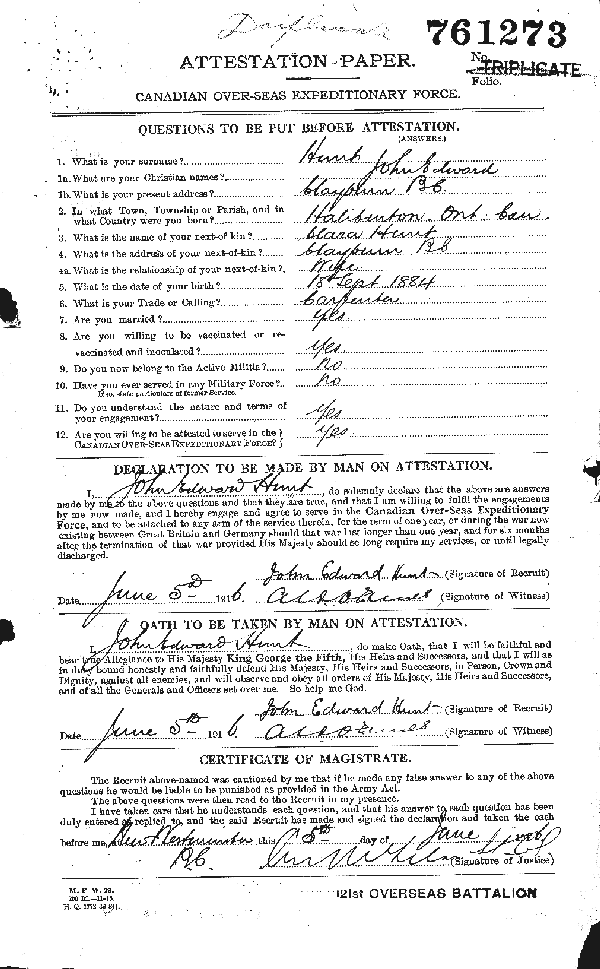 761273
ATTESTATION PAPER.
No.
TRIPLICATE
Folio.
CANADIAN OVER-SEAS EXPEDITIONARY FORCE.
QUESTIONS TO BE PUT BEFORE ATTESTATION.
(ANSWERS.)
1. What is your surname? Hunt
1a. What are your Christian names? John Edward
1b. What is your present address? Clayburn B.C.
2. In what Town, Township or Parish, and in
what Country were you born? Haliburton Ont. Can.
3. What is the name of your next-of kin? Clara Hunt
4. What is the address of your next-of-kin? Clayburn B.C.
4a. What is the relationship of your next-of-kin? Wife
5. What is the date of your birth? 18 Sept 1884
6. What is your Trade or Calling? Carpenter
7. Are you married? Yes
8. Are you willing to be vaccinated or re-
vaccinated and inoculated? Yes
9. Do you now belong to the Active Militia? No
10. Have you ever served in any Military Force? No
If so, state particulars of former Service.
11. Do you understand the nature and terms of
your engagement? Yes
12. Are you willing to be attested to serve in the
CANADIAN OVER-SEAS EXPEDITIONARY FORCE? Yes
DECLARATION TO BE MADE BY MAN ON ATTESTATION.
I, John Edward Hunt, do solemnly declare that the above are answers
made by me to the above questions and that they are true, and that I am willing to fulfil the engagements
by me now made, and I hereby engage and agree to serve in the Canadian Over-Seas Expeditionary
Force, and to be attached to any arm of the service therein, for the term of one year, or during the war now
existing between Great Britain and Germany should that war last longer than one year, and for six months
after the termination of that war provided His Majesty should so long require my services, or until legally
discharged.
John Edward Hunt (Signature of Recruit)
Date June 5th 1916. (Signature of Witness)
OATH TO BE TAKEN BY MAN ON ATTESTATION.
I, John Edward Hunt, do make Oath, that I will be faithful and
bear true Allegiance to His Majesty King George the Fifth, His Heirs and Successors, and that I will as
in duty bound honestly and faithfully defend His Majesty, His Heirs and Successors, in Person, Crown and
Dignity, against all enemies, and will observe and obey all orders of His Majesty, His Heirs and Successors,
and of all the Generals and Officers set over me. So help me God.
John Edward Hunt (Signature of Recruit)
Date June 5th 1916 (Signature of Witness)
CERTIFICATE OF MAGISTRATE.
The Recruit above-named was cautioned by me that if he made any false answer to any of the above
questions he would be liable to be punished as provided in the Army Act.
The above questions were then read to the Recruit in my presence.
I have taken care that he understands each question, and that his answer to each question has been
duly entered as replied to, and the said Recruit has made and signed the declaration and taken the oath
before me, New Westminster this 5th day of June 1916
B.C. (Signature of Justice)
M. F. W. 23.
H. Q. 1772-39-841.
121st OVERSEAS BATTALION